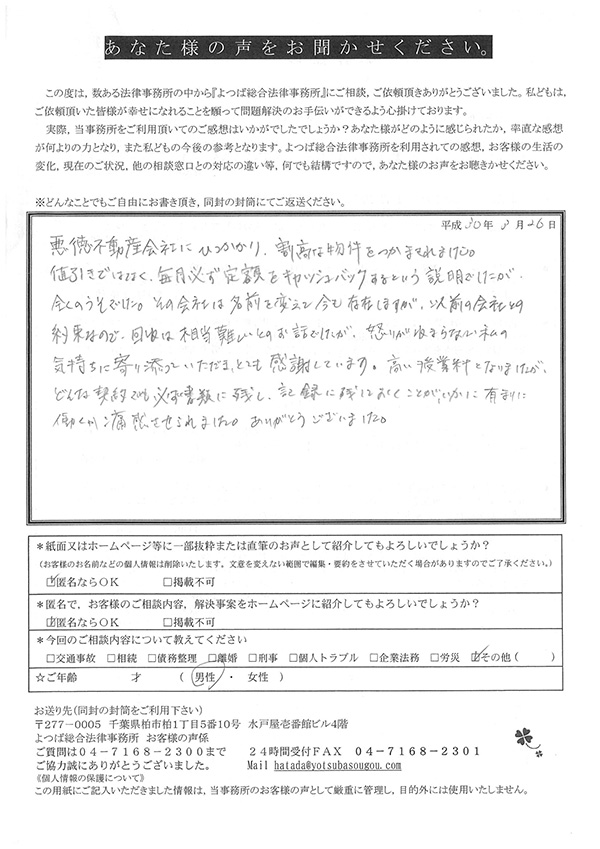 あなた様の声をお聞かせください。
この度は，数ある法律事務所の中から『よつば総合法律事務所』にご相談，ご依頼頂きありがとうございました。私どもは，
ご依頼頂いた皆様が幸せになれることを願って問題解決のお手伝いができるよう心掛けております。
実際，当事務所をご利用頂いてのご感想はいかがでしたでしょうか？あなた様がどのように感じられたか，率直な感想
が何よりの力となり，また私どもの今後の参考となります。よつば総合法律事務所を利用されての感想，お客様の生活の
変化，現在のご状況，他の相談窓口との対応の違い等，何でも結構ですので，あなた様のお声をお聴きかせください。
※どんなことでもご自由にお書き頂き，同封の封筒にてご返送ください。
平成 30 年 8 月 26 日
悪徳不動産会社にひっかかり、割高な物件をつかまされました。
値引きではなく、毎月必ず定額をキャッシュバックするという説明でしたが、
全くのうそでした。その会社は名前を変えて今も存在しますが、以前の会社との
約束なので、回収は相当難しいとのお話でしたが、怒りが収まらない私の
気持ちに寄り添っていただき、とても感謝しています。高い授業料となりましたが、
どんな契約でも必ず書類に残し、記録に残しておくことが、いかに有利に
働くか、痛感させられました。ありがとうございました。
＊紙面又はホームページ等に一部抜粋または直筆のお声として紹介してもよろしいでしょうか？
（お客様のお名前などの個人情報は削除いたします。文意を変えない範囲で編集・要約をさせていただく場合がありますのでご了承ください。）
☑匿名ならＯＫ □掲載不可
＊匿名で，お客様のご相談内容，解決事案をホームページに紹介してもよろしいでしょうか？
☑匿名ならＯＫ □掲載不可
＊今回のご相談内容について教えてください
□交通事故 □相続 □債務整理 □離婚 □刑事 □個人トラブル □企業法務 □労災 ☑その他（ ）
☆ご年齢 才 （ 男性 ・ 女性 ）
お送り先（同封の封筒をご利用下さい）
〒277－0005 千葉県柏市柏１丁目５番１０号 水戸屋壱番館ビル４階
よつば総合法律事務所 お客様の声係
ご質問は０４－７１６８－２３００まで ２４時間受付ＦＡＸ ０４－７１６８－２３０１
ご協力誠にありがとうございました。 Mail hatada@yotsubasougou.com
《個人情報の保護について》
この用紙にご記入いただきました情報は，当事務所のお客様の声として厳重に管理し，目的外には使用いたしません。